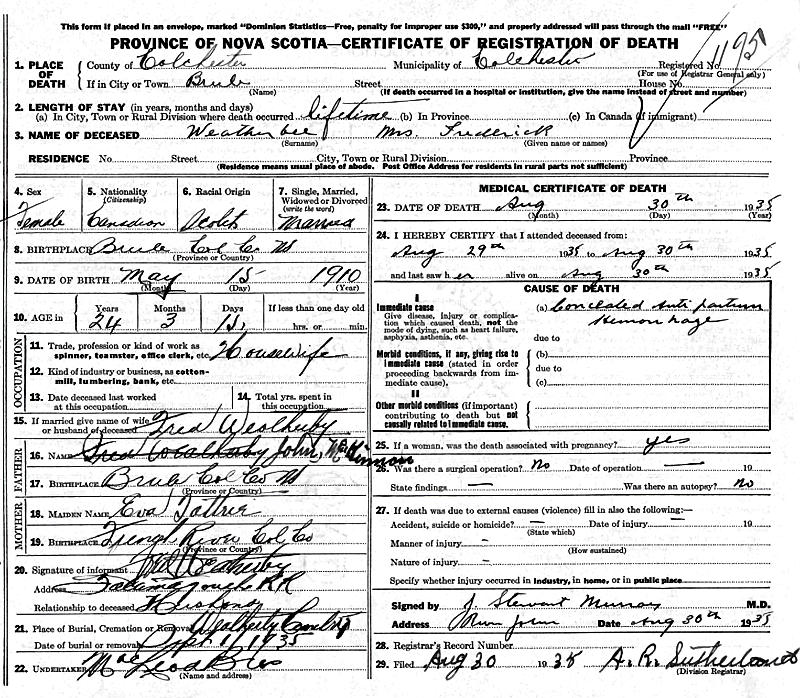 This form if placed in an envelope, marked "Dominion Statistics—Free, penalty for improper use $300," and properly addressed will pass through the mail "FREE"
PROVINCE OF NOVA SCOTIA—CERTIFICATE OF REGISTRATION OF DEATH
1. PLACE OF DEATH County of Colchester Municipality of Colchester Registered No. 1195
(For use of Registrar General only)
If in City or Town Brule Street House No.
(Name) (If death occurred in a hospital or institution, give the name instead of street and number)
2. LENGTH OF STAY (in years, months and days)
(a) In City, Town or Rural Division where death occurred lifetime (b) In Province (c) In Canada (if immigrant)
3. NAME OF DECEASED Weatherbee Mrs. Frederick
(Surname) (Given name or names)
RESIDENCE No. Street City, Town or Rural Division Province
(Residence means usual place of abode. Post Office Address for residents in rural parts not sufficient)
4. Sex 5. Nationality (Citizenship) 6. Racial Origin 7. Single, Married, Widowed or Divorced (write the word)
Female Canadian Scotch Married
8. BIRTHPLACE Brule Col Co NS
(Province or Country)
9. DATE OF BIRTH May 15 1910
(Month) (Day) (Year)
10. AGE in Years Months Days If less than one day old
24 3 15 hrs. or min.
OCCUPATION
11. Trade, profession or kind of work as spinner, teamster, office clerk, etc. Housewife
12. Kind of industry or business, as cotton-mill, lumbering, bank, etc.
13. Date deceased last worked at this occupation 14. Total yrs. spent in this occupation
15. If married give name of wife or husband of deceased Fred Weatherby
FATHER
16. NAME Fred Weatherby John McKinnon
17. BIRTHPLACE Brule Col Co NS
(Province or Country)
MOTHER
18. MAIDEN NAME Eva Tattrie
19. BIRTHPLACE French River Col Co
(Province or Country)
20. Signature of informant Fred Weatherby
Address Tatamagouche RR
Relationship to deceased Husband
21. Place of Burial, Cremation or Removal Weatherby Cemetery
Date of burial or removal Sept 1 1935
22. UNDERTAKER MacLeod Bros
(Name and address)
MEDICAL CERTIFICATE OF DEATH
23. DATE OF DEATH Aug 30th 1935
(Month) (Day) (Year)
24. I HEREBY CERTIFY that I attended deceased from:
Aug 29th 1935 to Aug 30th 1935
and last saw her alive on Aug 30th 1935
CAUSE OF DEATH
I
Immediate cause (a) Concealed Anti partum Hemorrhage
Give disease, injury or complication which caused death, not the mode of dying, such as heart failure, asphyxia, asthenia, etc.
due to
Morbid conditions, if any, giving rise to immediate cause (stated in order proceeding backwards from immediate cause). (b)
due to
(c)
II
Other morbid conditions (if important) contributing to death but not causally related to immediate cause.
25. If a woman, was the death associated with pregnancy? yes
26. Was there a surgical operation? No Date of operation — 19
State findings — Was there an autopsy? No
27. If death was due to external causes (violence) fill in also the following:—
Accident, suicide or homicide? — Date of injury — 19
(State which)
Manner of injury -
(How sustained)
Nature of injury -
Specify whether injury occurred in industry, in home, or in public place
Signed by J. Stewart Murray M.D.
Address River John Date Aug 30th 1935
28. Registrar's Record Number
29. Filed Aug 30 1935 A. R. Sutherland
(Division Registrar)